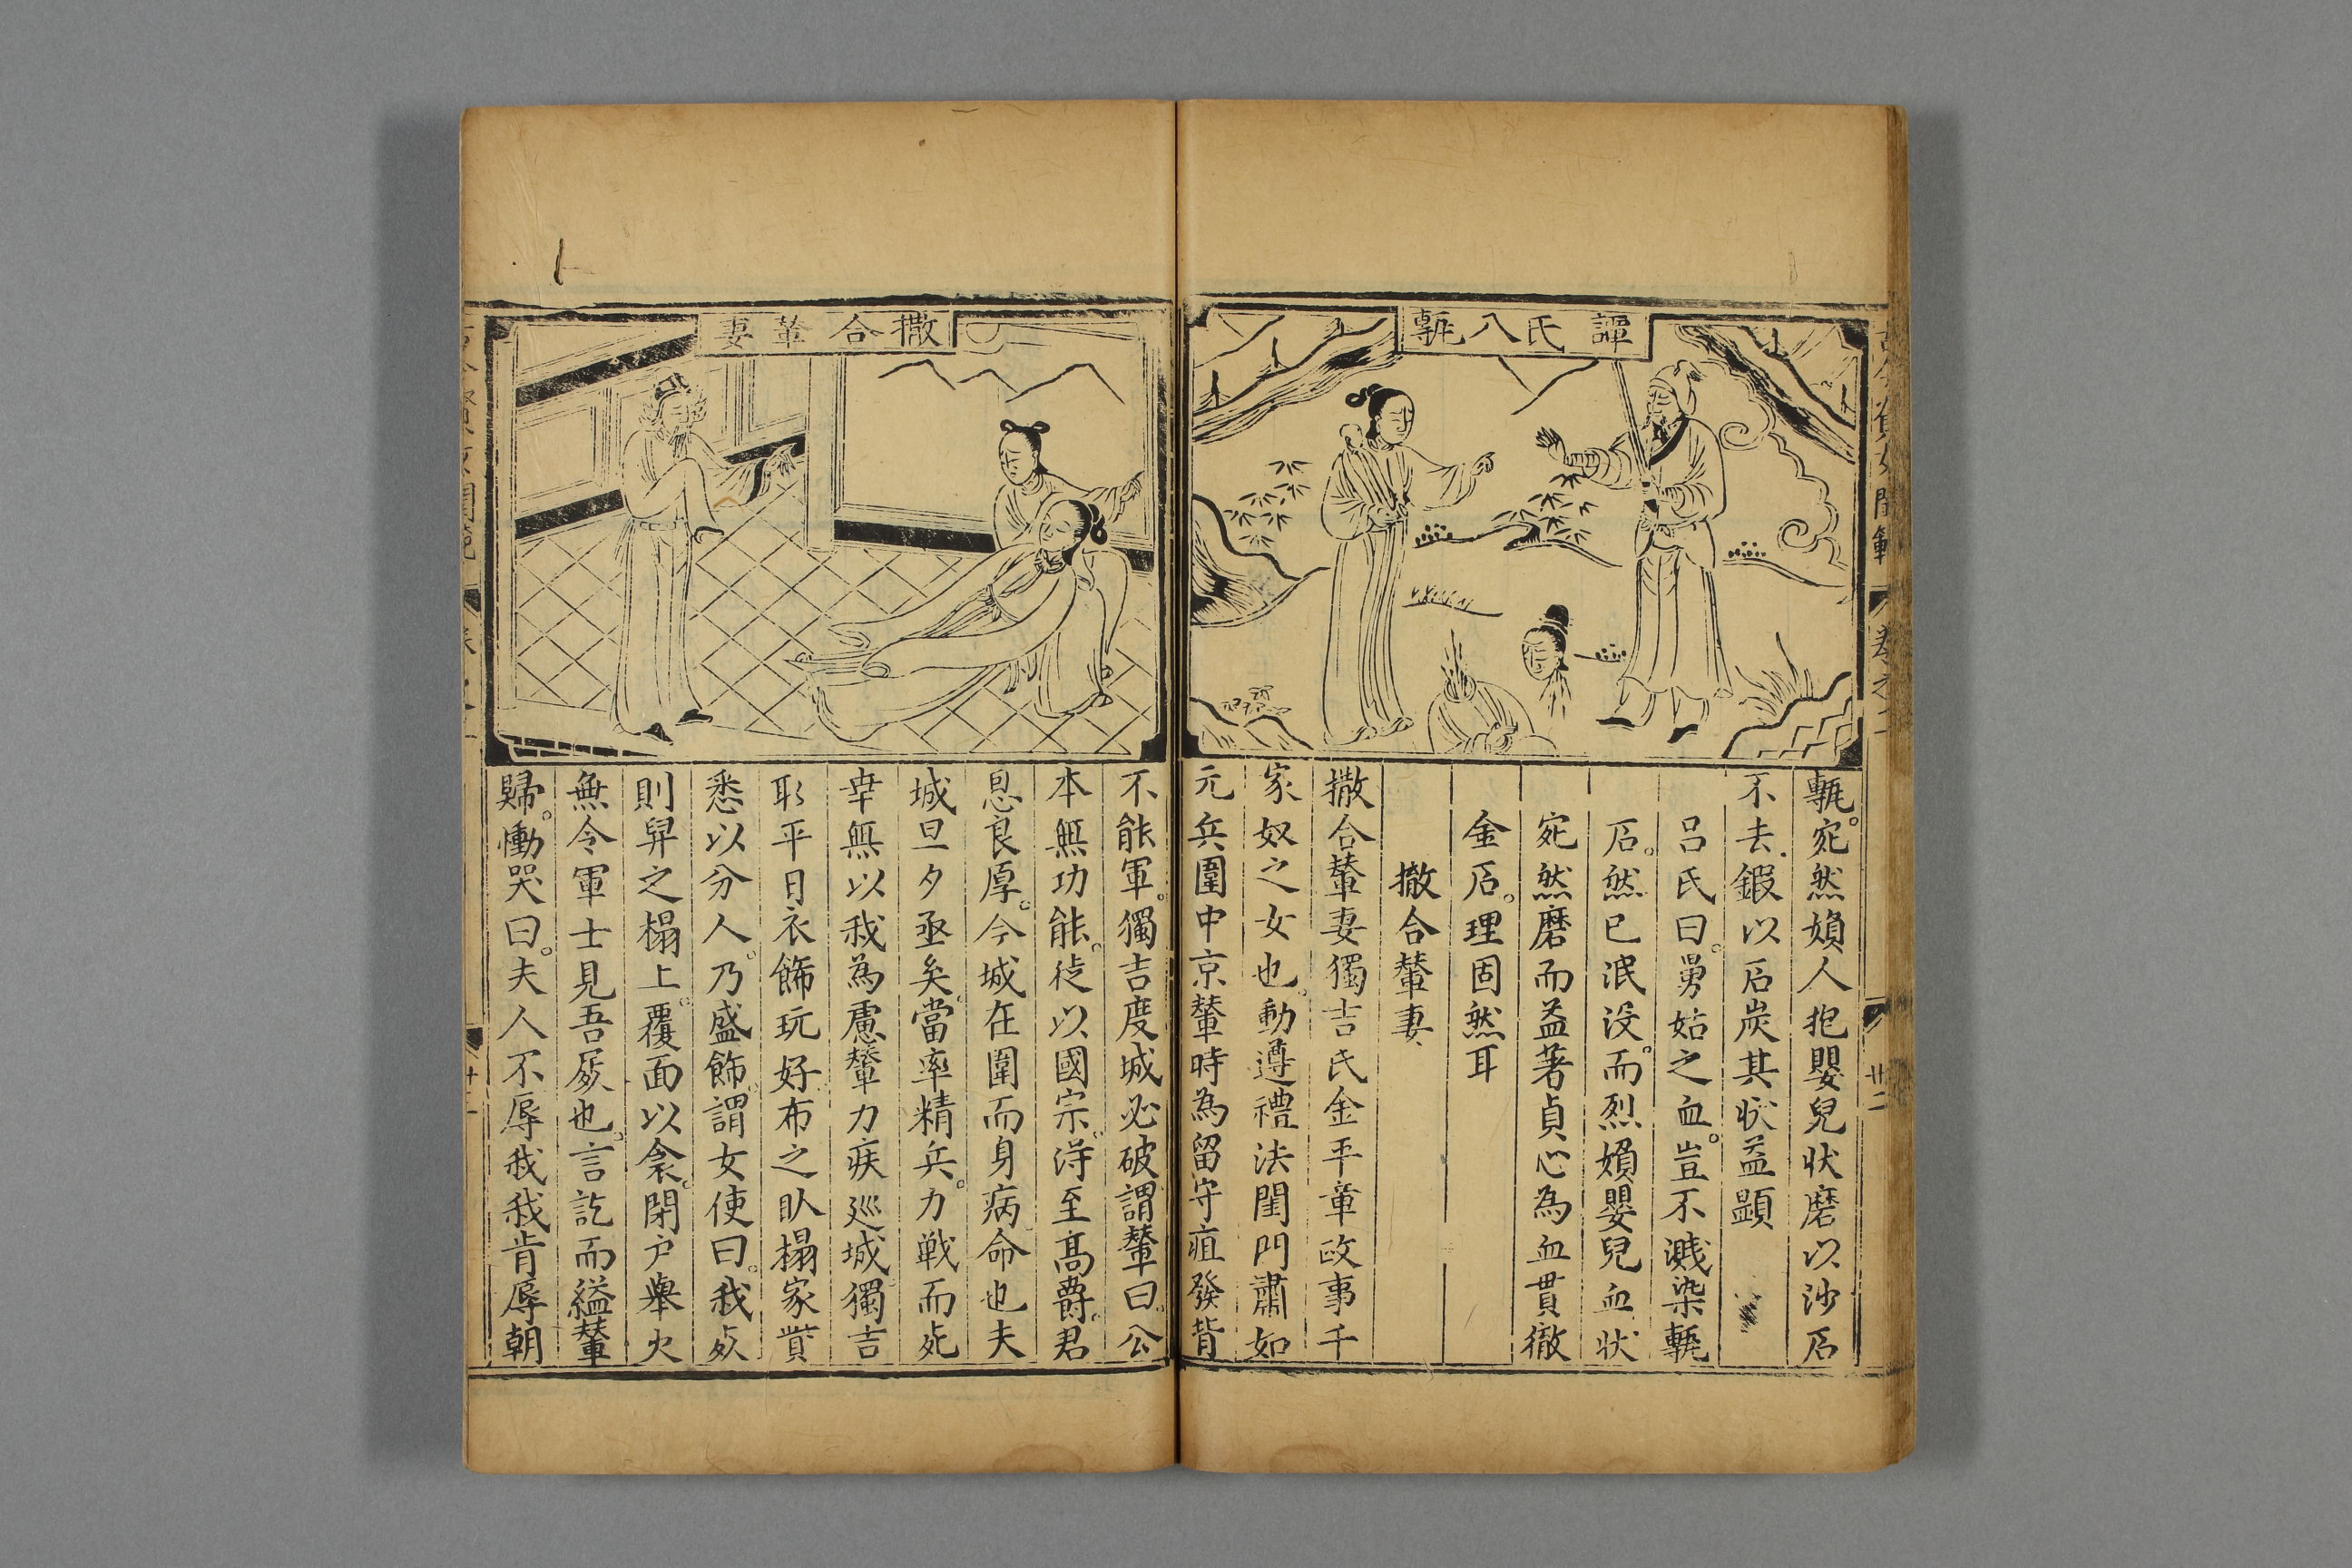 譚氏八甎
甎。宛然婦人抱嬰兒狀磨以沙石
不去鍜以石炭其狀益顯
呂氏曰。舅姑之血。豈不濺染甎
石。然已泯沒。而烈婦嬰兒血狀
宛然磨而益著貞心為血貫徹
金石。理固然耳
撒合輦妻
撒合輦妻獨吉氏金平章政事千
家奴之女也。動遵禮法閨門肅如
元兵圍中京輦時為留守疽發背
卷之二
廿二
撒合輦妻
不能軍。獨吉度城必破謂輦曰。公
本無功能。徒以國宗。淂至高爵。君
恩良厚。今城在圍而身病命也夫
城旦夕亟矣。當率精兵。力戰而死
幸無以我為慮輦力疾巡城獨吉
取平日衣飾玩好布之臥榻家貲
悉以分人。乃盛飾。謂女使曰。我死
則舁之榻上。覆面以衾。閉戶舉火
無令軍士見吾屍也。言訖而縊輦
歸。慟哭曰。夫人不辱我我肯辱朝